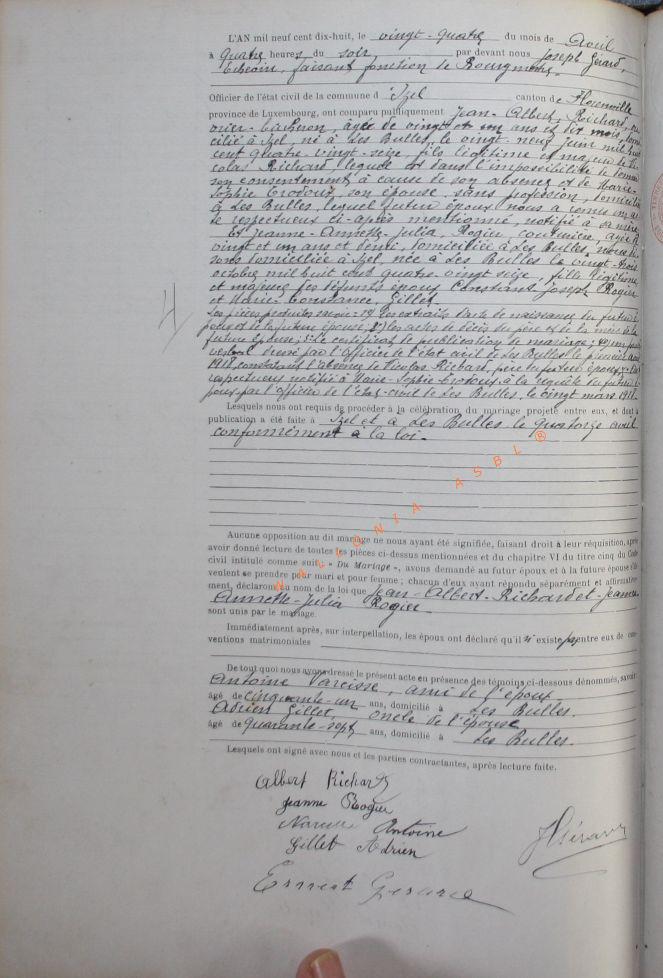 L'AN mil neuf cent dix-huit, le vingt-quatre du mois de Avril
à quatre heures du soir, par devant nous Joseph Gérard,
Echevin, faisant fonction de Bourgmestre,
Officier de l'état civil de la commune d'Izel canton de Florenville
province de Luxembourg, ont comparu publiquement Jean-Albert Richard, ou
vrier-bûcheron, âgé de vingt et un ans et dix mois, domi
cilié à Izel, né à Les Bulles, le vingt-neuf juin mil huit
cent quatre-vingt-seize, fils légitime et majeur de Ni
colas Richard, lequel est dans l'impossibilité de donner
son consentement à cause de son absence et de Marie-
Sophie son épouse, sans profession, domiciliée
à Les Bulles, lequel futur époux nous a remis un ac
te respectueux ci-après mentionné, notifié à sa mère
Et Jeanne-Annette-Julia Rogier couturière, âgée de
vingt et un ans et demi, domiciliée à Les Bulles,
domiciliée à Izel, née à Les Bulles le vingt-trois
octobre mil huit cent quatre-vingt seize, fille légitime
et majeure des défunts époux Constant Joseph Rogier
et Marie-Constance Gillet.
Les pièces produites sont: 1°) les extraits d'acte de naissance du futur é
poux et de la future épouse; 2°) les actes de décès du père et de la mère de la
future épouse; 3° Le certificat de publication de mariage; 4°) un procès
verbal dressé par l'Officier de l'état civil de Les Bulles le
1918 constatant l'absence de Nicolas Richard, père du futur époux;
respectueux notifié à Marie-Sophie à la requête du futur é
poux par l'Officier de l'état-civil de Les Bulles, le vingt mars 1918.
Lesquels nous ont requis de procéder à la célébration du mariage projeté entre eux, et dont la
publication a été faite à Izel et à Les Bulles le quatorze avril
conformément à la loi.
WALLONIA ASBL ®
Aucune opposition au dit mariage ne nous ayant été signifiée, faisant droit à leur réquisition, après
avoir donné lecture de toutes les pièces ci-dessus mentionnées et du chapitre VI du titre cinq du Code
civil intitulé comme suit: « Du Mariage », avons demandé au futur époux et à la future épouse s'ils
veulent se prendre pour mari et pour femme; chacun d'eux ayant répondu séparément et affirmative
ment, déclarons au nom de la loi que Jean-Albert-Richard et Jeanne
Annette-Julia Rogier
sont unis par le mariage.
Immédiatement après, sur interpellation, les époux ont déclaré qu'il n'existe pas entre eux de con
ventions matrimoniales
De tout quoi nous avons dressé le présent acte en présence des témoins ci-dessous dénommés, savoir
Antoine Narcisse, ami de l'époux
âgé de cinquante-un ans, domicilié à Les Bulles.
Adrien Gillet, oncle de l'épouse
âgé de quarante-sept ans, domicilié à Les Bulles.
Lesquels ont signé avec nous et les parties contractantes, après lecture faite.
Albert Richard
Jeanne Rogier
Narcisse Antoine
Gillet Adrien
J Gérard
Ernest Gerard